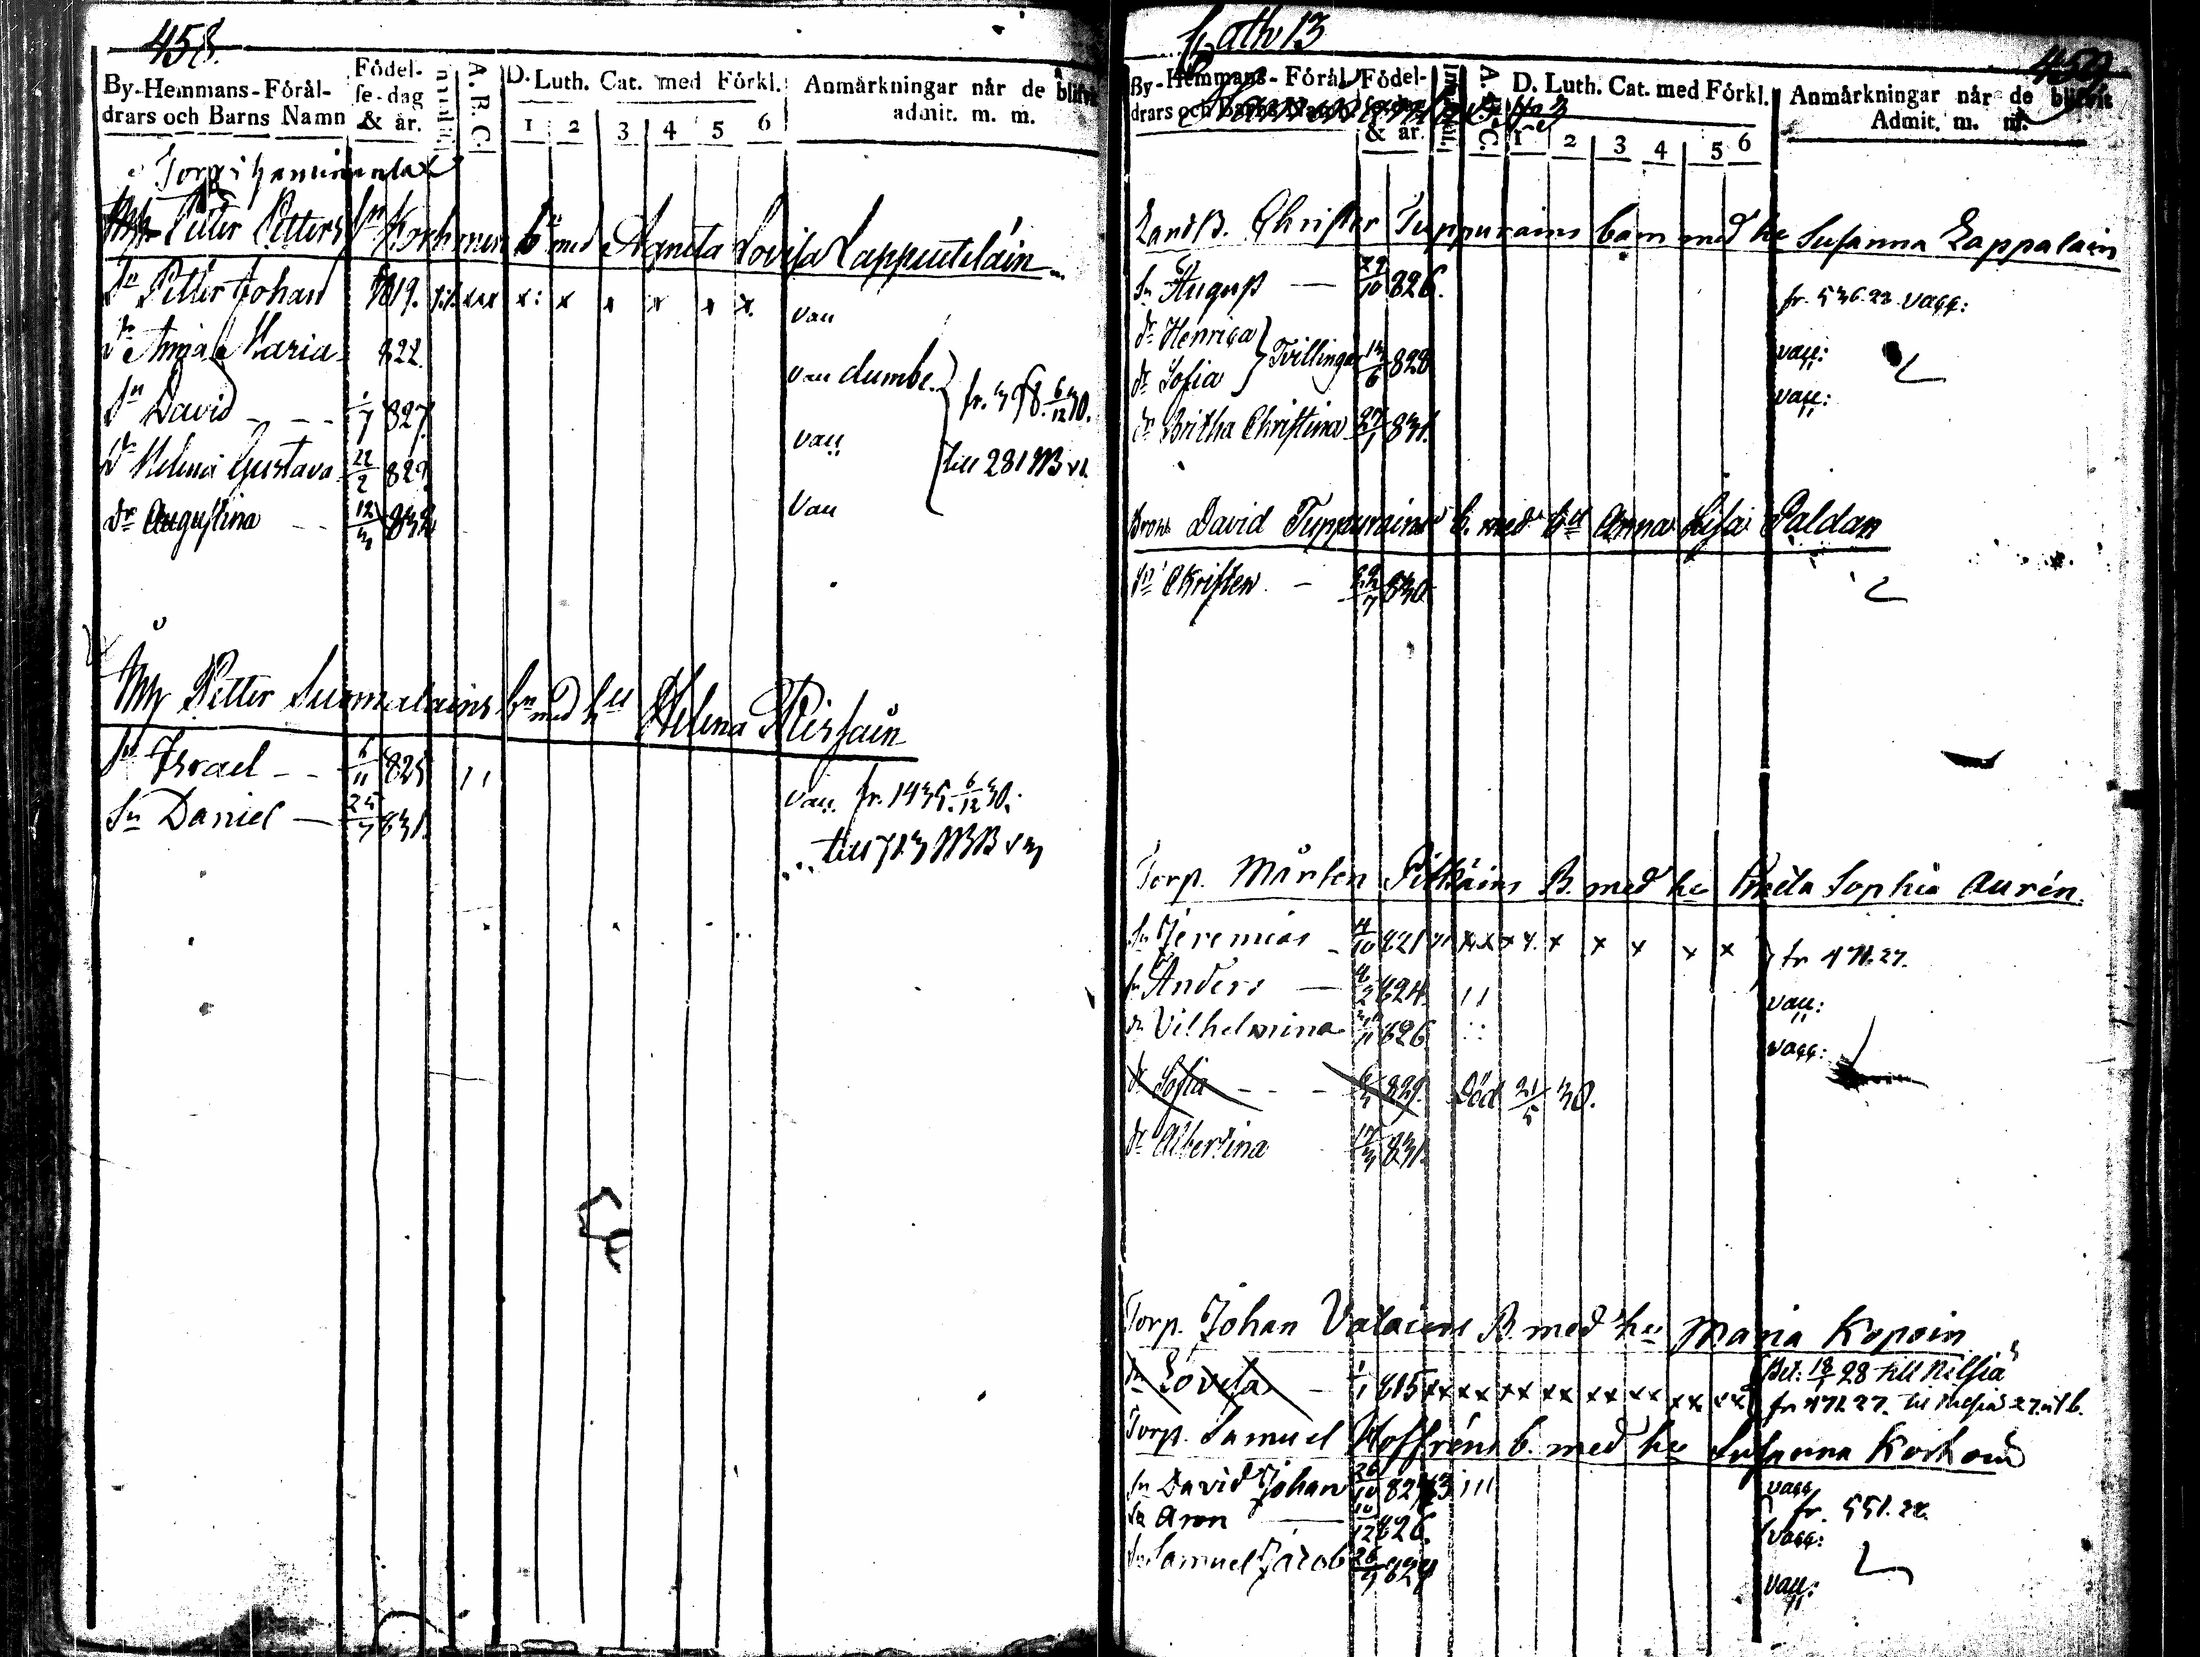 458.
By-Hemmans-Föräl-
drars och Barns Namn
Födel-
se-dag
& år.
A. B. C.
D. Luth. Cat. med Förkl.
1 2 3 4 5 6
Anmärkningar når de blifvit
admit. m. m.
Petter Petters Sn Korhonen bn med Agneta Lovisa Lappeteläin
Sn Petter Johan 819. x: x x x x x van
dr Anna Maria 822. van dumbe.
Sn David 1/7 827. fr. 398. 6/12 30.
dr Helena Gustava 22/2 829. van till 281 MB
dr Augustina 12/3 832 van
Petter Surmalains bn med hu Helena
Sn Israel - - 6/11 825 11 van. fr. 1435. 6/12 30.
Sn Daniel — 25/7 831. till 713 MB
Cath 13
459
By-Hemmans-Förål
drars och Barns
Födel-
& år.
A. B. C.
D. Luth. Cat. med Förkl.
1 2 3 4 5 6
Anmårkningar når de blifvit
Admit. m. m.
LandB. Christer Tuppurains barn med hu Susanna Lappalain
Sn August — 29/10 826. fr. 536.22 vacc:
dr Henrica } Tvillingar 13/6 828 vacc:
dr Sofia vacc:
dr Britha Christina 27/1 831.
David Tuppurains b. med hu Anna Lisa Paldan
Sn Christen — 22/7 830
Torp. Mårten Pitkäins B. med hu Greta Sophia Aurén.
Sn Jeremias - 4/10 821 x x x x x x x x x fr 471.27.
Sn Anders — 4/2 824 11 vacc:
dr Vilhelmina /11 826 vacc:
dr Sofia - - 829. Död 21/5 30.
dr Albertina 17/3 831.
Torp. Johan Valacius B. med hu Maria Kopoin
dr Lovisa — 1/1 815 xx xx xx xx xx xx xx xx Bet: 18/1 28 till Nilsiä
fr 471.27.
Torp. Samuel Hoffréns b. med hu Susanna Korhoin
Sn David Johan 26/10 823 111 vacc
Sn Aron — 10/12 826. fr. 551.28. vacc:
Sn Samuel Jacob 26/9 829 vacc: